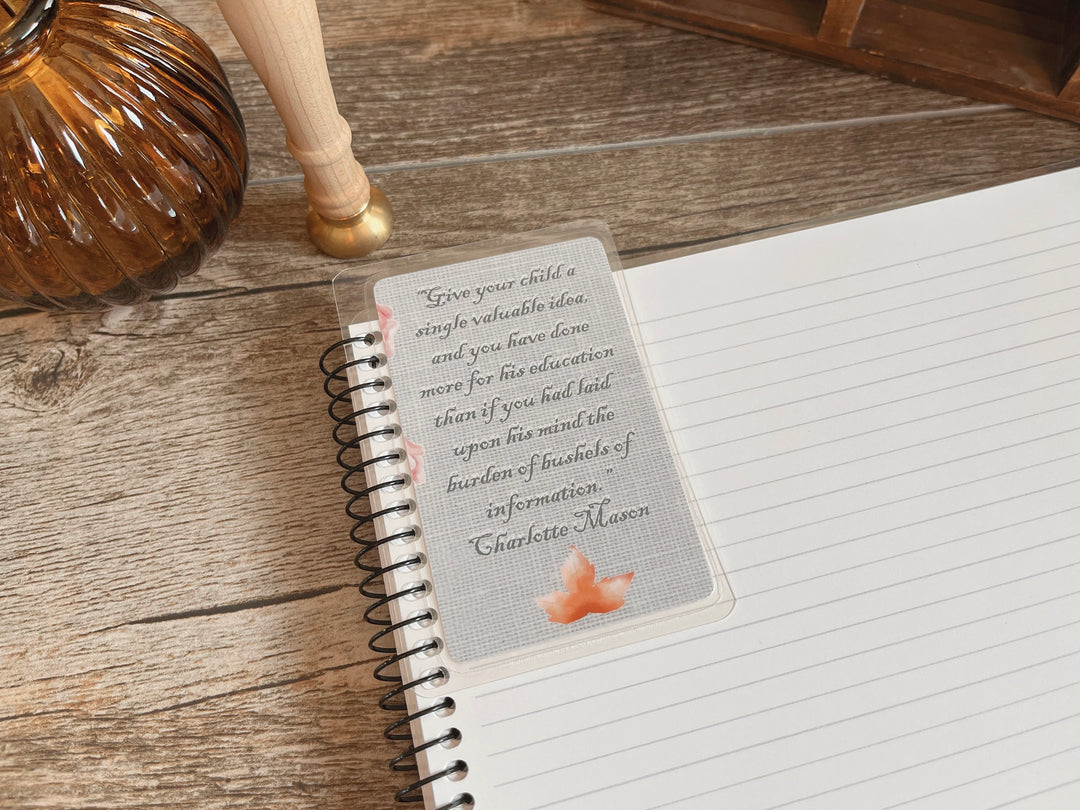 "Give your child a
single valuable idea,
and you have done
more for his education
than if you had laid
upon his mind the
burden of bushels of
information."
Charlotte Mason